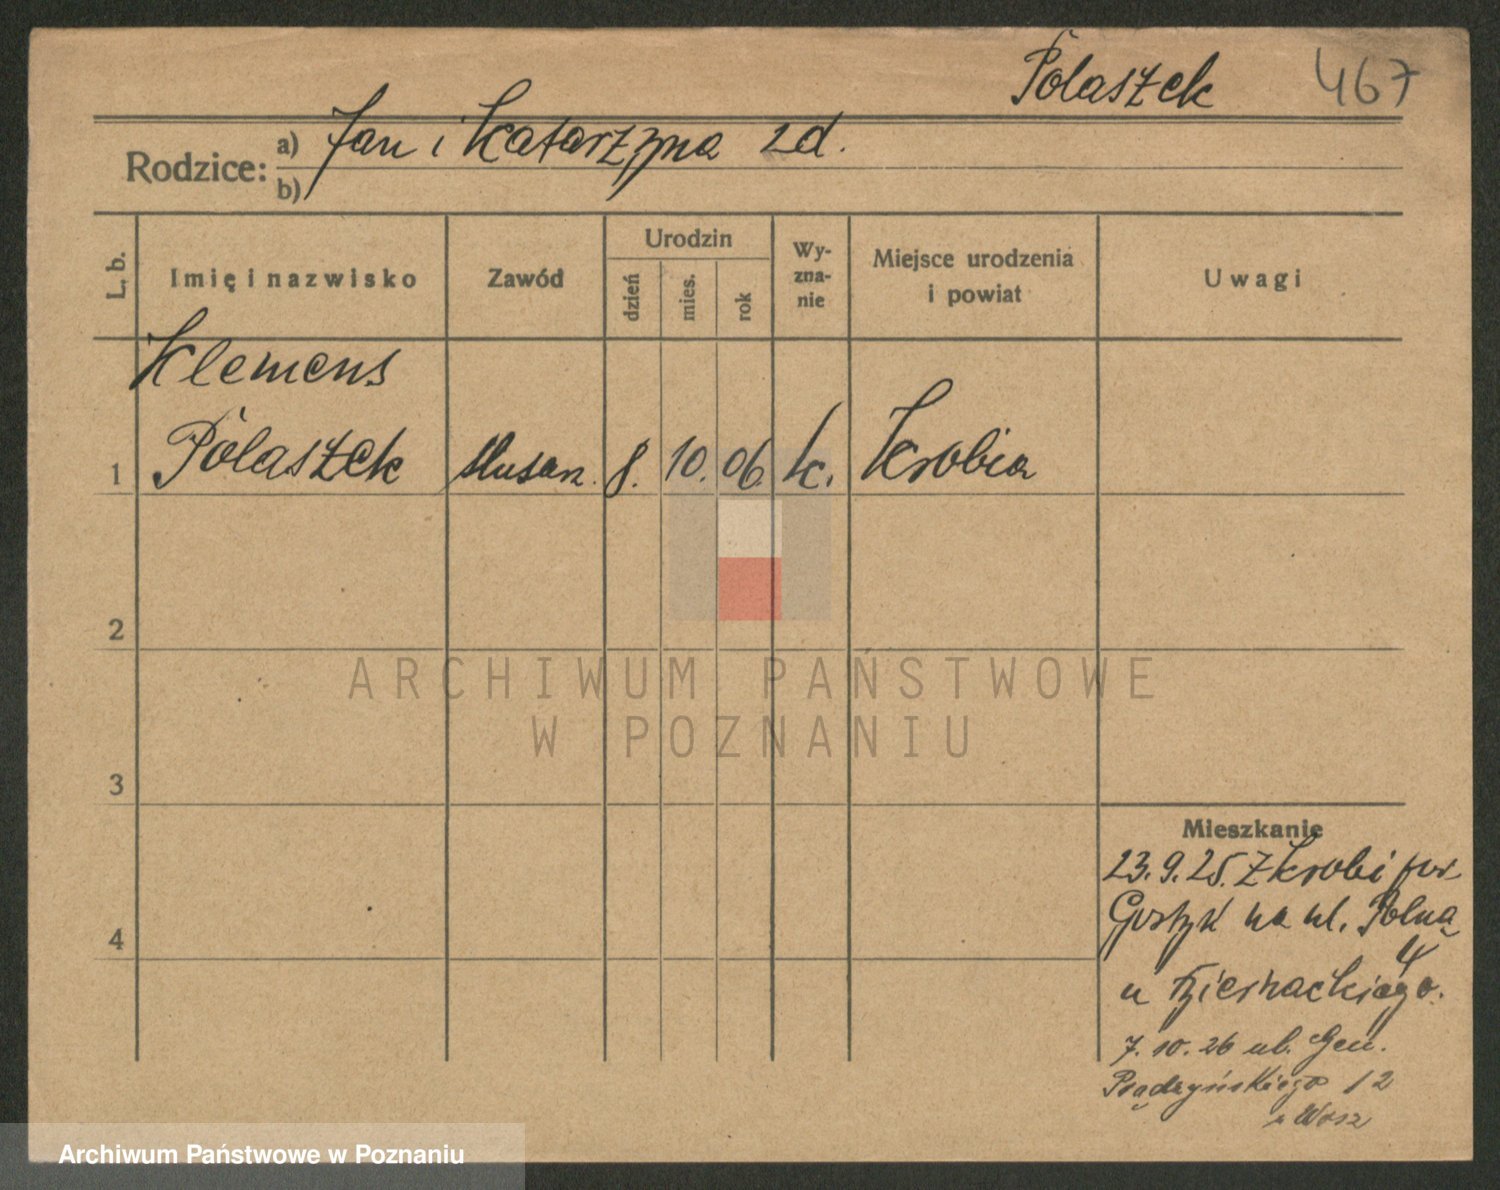 Polaszek 467
Rodzice: a) Jan i Katarzyna zd.
b)
L. b. Imię i nazwisko Zawód Urodzin dzień mies. rok Wy-zna-nie Miejsce urodzenia i powiat Uwagi
Klemens
1 Polaszek ślusarz. 8. 10. 06. k. Krobia
2
3
4
Mieszkanie
23.9.25. z Krobi pow
Gostyń na ul. Polną
4
u
7.10.26 ul. Gen.
Prądzyńskiego 12
u Wosz
ARCHIWUM PAŃSTWOWE
W POZNANIU
Archiwum Państwowe w Poznaniu